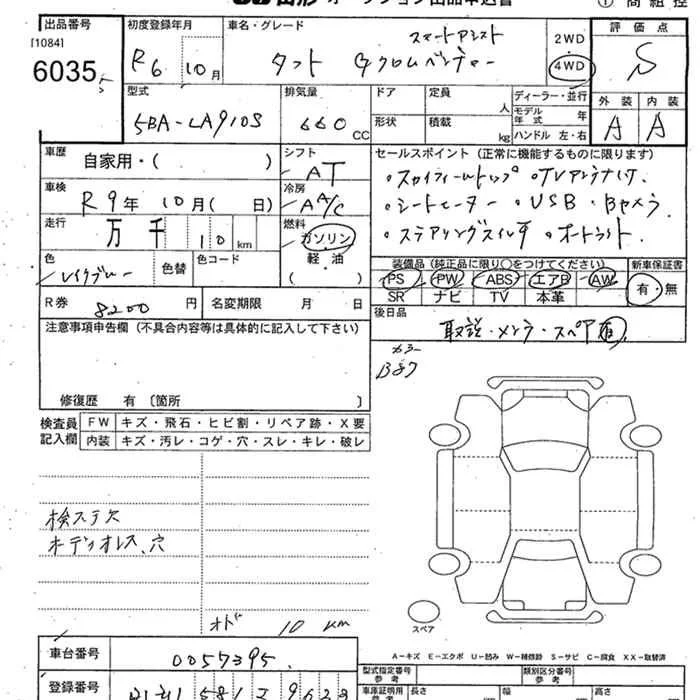 山形 オークション出品申込書 ① 商組控
出品番号 初度登録年月 車名・グレード 評価点
[1084] スマートアシスト 2WD
6035 R6 10月 タフト Gクロムベンチャー 4WD S
型式 排気量 ドア 定員 人 ディーラー・並行 モデル年式 年 外装 内装
5BA-LA910S 660 CC 形状 積載 kg ハンドル 左・右 A A
車歴 自家用・( ) シフト AT セールスポイント (正常に機能するものに限ります)
車検 R9年 10月( 日) 冷房 AA/C ・スカイフィールトップ ・TVアンテナ付
・シートヒーター ・USB ・Bカメラ
走行 万 千 10 km 燃料 ガソリン ・ステアリングスイッチ ・オートライト
色 レイクブルー 色替 色コード 軽油 ( )
装備品 (純正品に限り○をつけてください) 新車保証書
PS PW ABS エアB AW 有・無
SR ナビ TV 本革
R券 8200円 名変期限 月 日 後日品
取説・メンテ・スペア有
注意事項申告欄 (不具合内容等は具体的に記入して下さい)
カラー
B87
修復歴 有 〔箇所 〕
検査員記入欄 FW キズ・飛石・ヒビ割・リペア跡・X要
内装 キズ・汚レ・コゲ・穴・スレ・キレ・破レ
検ステ欠
オーディオレス、穴
オド 10 km
スペア
A−キズ E−エクボ U−凹み W−補修跡 S−サビ C−腐食 XX−取替済
車台番号 0057395 型式指定番号 類別区分番号
参考 参考
登録番号 581 9623 車庫証明用 参考 長さ 幅 高さ